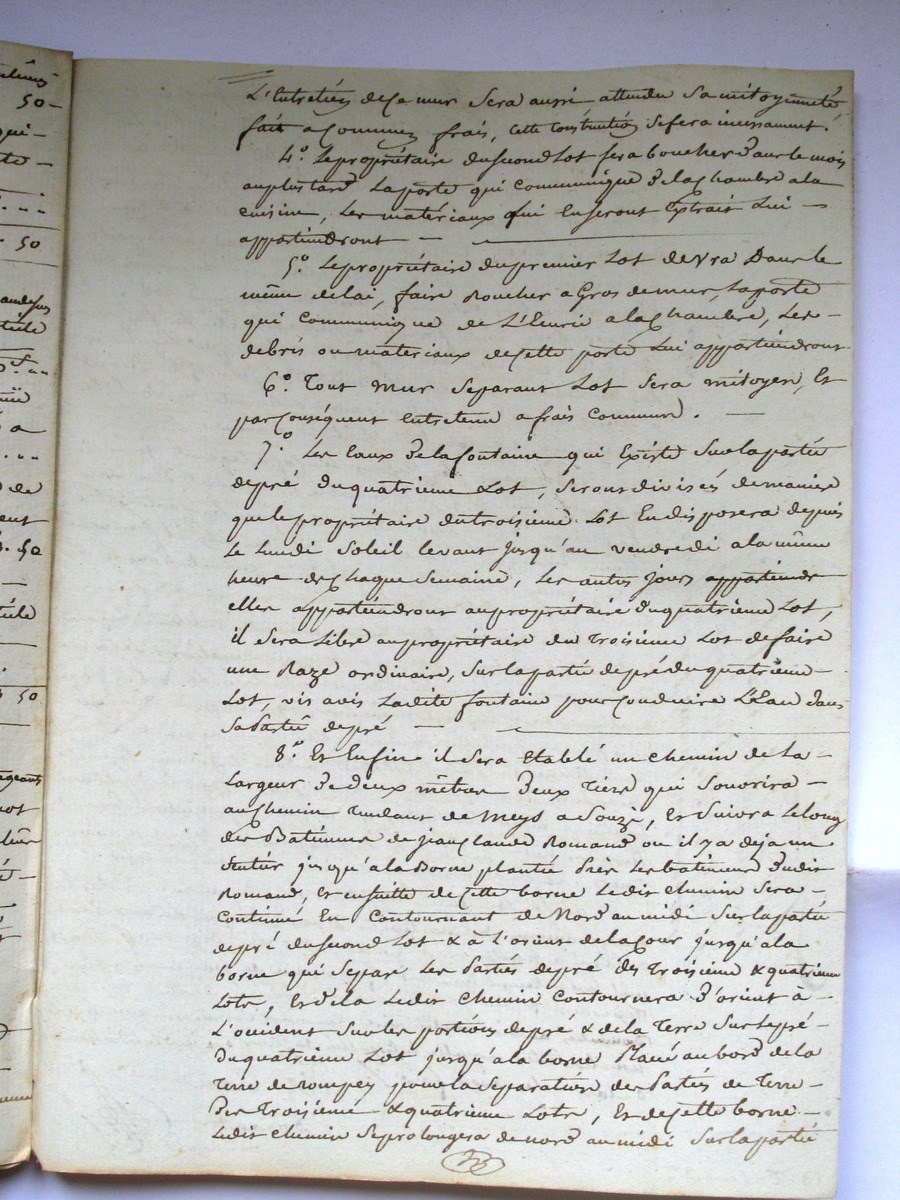 L'Entretien de ce mur sera aussi, attendu sa mitoyenneté
fait a communs frais, cette construction se fera incessament.
4.º Le propriétaire du second Lot fera boucher dans le mois
au plus tard La porte qui communique de la chambre a la
cuisine, Les matériaux qui En seront Extrait Lui —
appartiendront —
5.º Le propriétaire du premier Lot devra Dans le
même delai, faire Boucher a Gros de mur, La porte
qui communique de L'Ecurie a la chambre, Les —
debris ou materiaux de cette porte Lui appartiendront
6.º Tout mur separant Lot sera mitoyen, Et
par conséquent Entretenu a frais commun. —
7.º Les Eaux de la fontaine qui Existe sur la partie
de pré du quatrieme Lot, seront divisés de maniere
que le propriétaire du troisieme Lot En disposera depuis
Le Lundi Soleil levant jusqu'au vendredi a la même
heure de chaque semaine, Les autres jours appartiendr
elles appartiendront au propriétaire du quatrieme Lot,
il sera Libre au propriétaire du Troisieme Lot de faire
une Raze ordinaire, sur la partie de pré du quatrieme —
Lot, vis avis Ladite fontaine pour conduire L'Eau dans
sa Partie de pré —
8.º Et Enfin il sera Etablé un chemin de La —
Largeur de deux mêtres deux Tiers qui souvrira —
au chemin Tendant de Meys a Souzi, Et suivra Le long
des Batiments de jean Claude Romand ou il y a deja un
sentier jusqu'a la Borne planté Près Les batiments dudit
Romand, Et ensuitte de cette borne Ledit chemin sera —
Continué En Contournant de Nord au midi sur la partie
de pré du second Lot & à L'orient de la Cour jusqu'a la
borne qui separe Les Partiés de pré des Troisieme & quatrieme
Lots, Et de la Ledit chemin Contournera d'orient à —
L'occident sur les portions de pré & de la Terre sur Le pré —
du quatrieme Lot jusqu'a la borne Placé au bord de la
Terre de pour la separation des Partiés de Terre —
Des Troisiemé & quatrieme Lots, Et de cette borne —
Ledit chemin se prolongera de nord au midi sur la partié